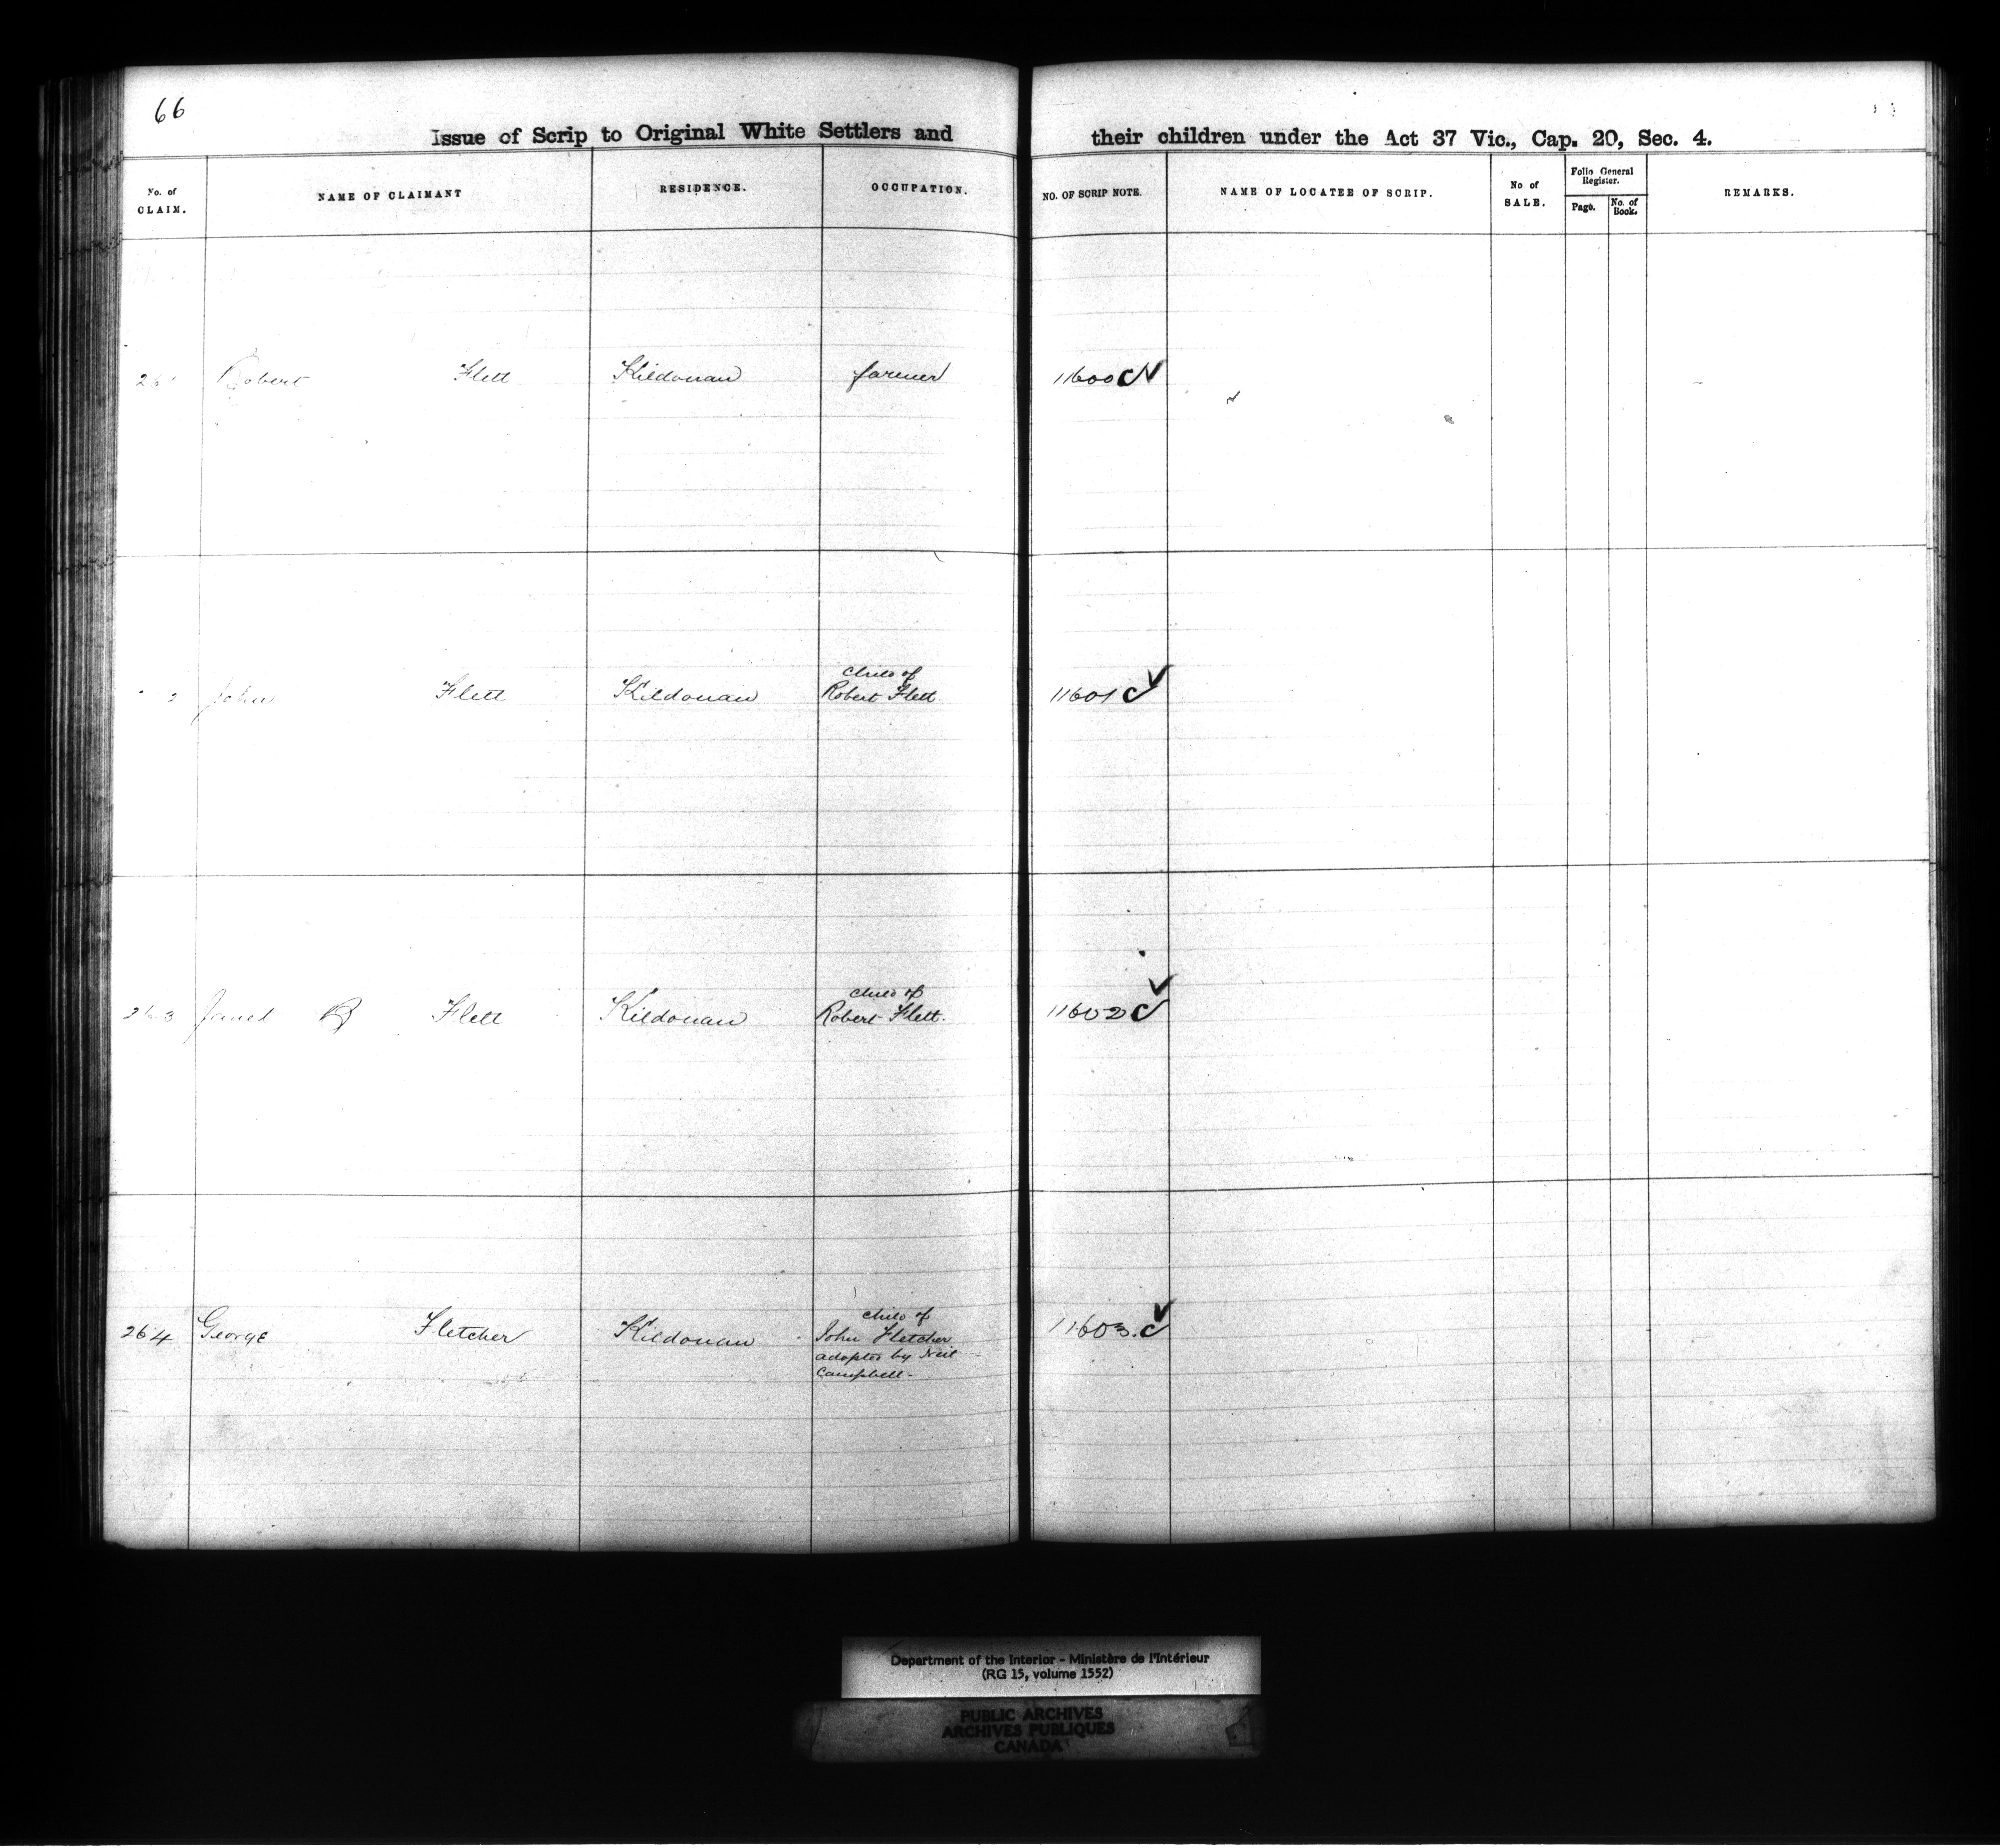 66
Issue of Scrip to Original White Settlers and their children under the Act 37 Vic., Cap. 20, Sec. 4.
No. of CLAIM. NAME OF CLAIMANT RESIDENCE. OCCUPATION. NO. OF SCRIP NOTE. NAME OF LOCATEE OF SCRIP. No of SALE. Folio General Register. Page. No. of Book. REMARKS.
261 Robert Flett Kildonan farmer 11600
child of
John Flett Kildonan Robert Flett 11601
child of
263 Janet B Flett Kildonan Robert Flett. 11602
child of
264 George Fletcher Kildonan John Fletcher 11603.
adopted by Neil
Campbell-
Department of the Interior - Ministère de l'Intérieur
(RG 15, volume 1552)
PUBLIC ARCHIVES
ARCHIVES PUBLIQUES
CANADA